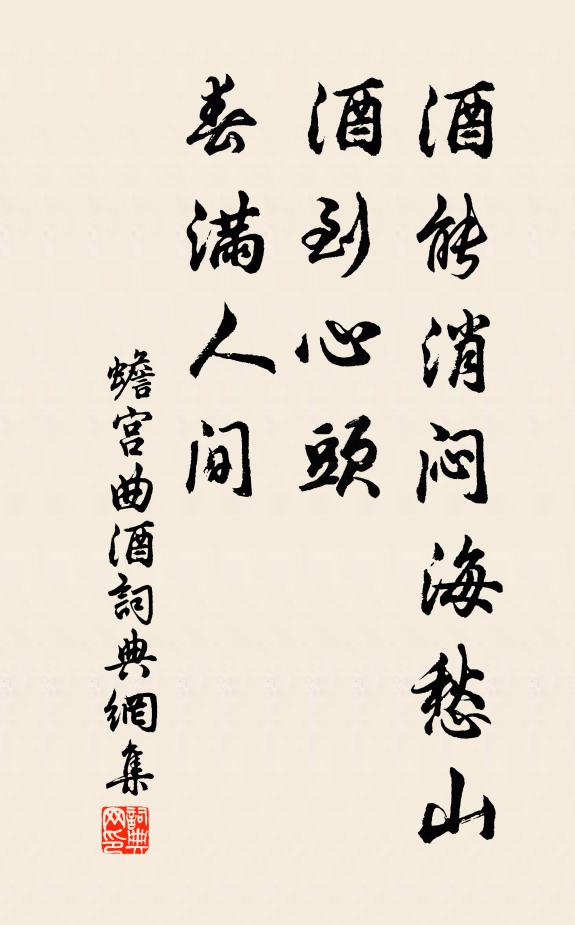 酒能消闷海愁山
酒到心頭
春满人间
蟾宫曲酒詞典網集
詞典网印